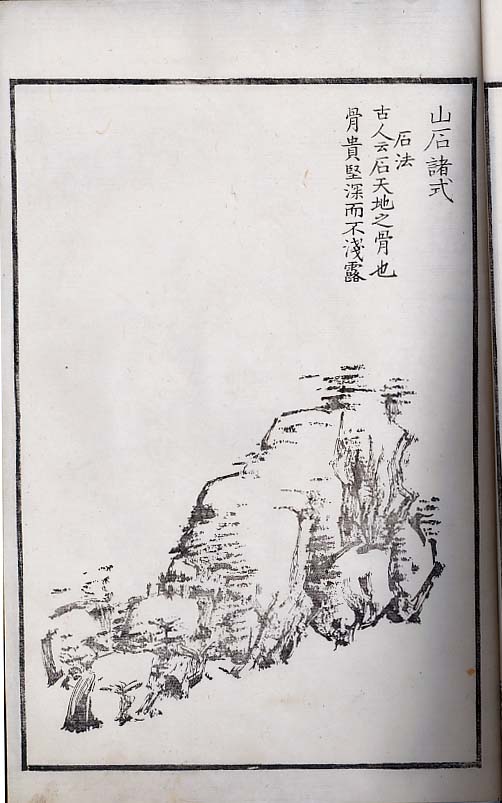 山石諸式
石法
古人云石天地之骨也
骨貴堅深而不淺露